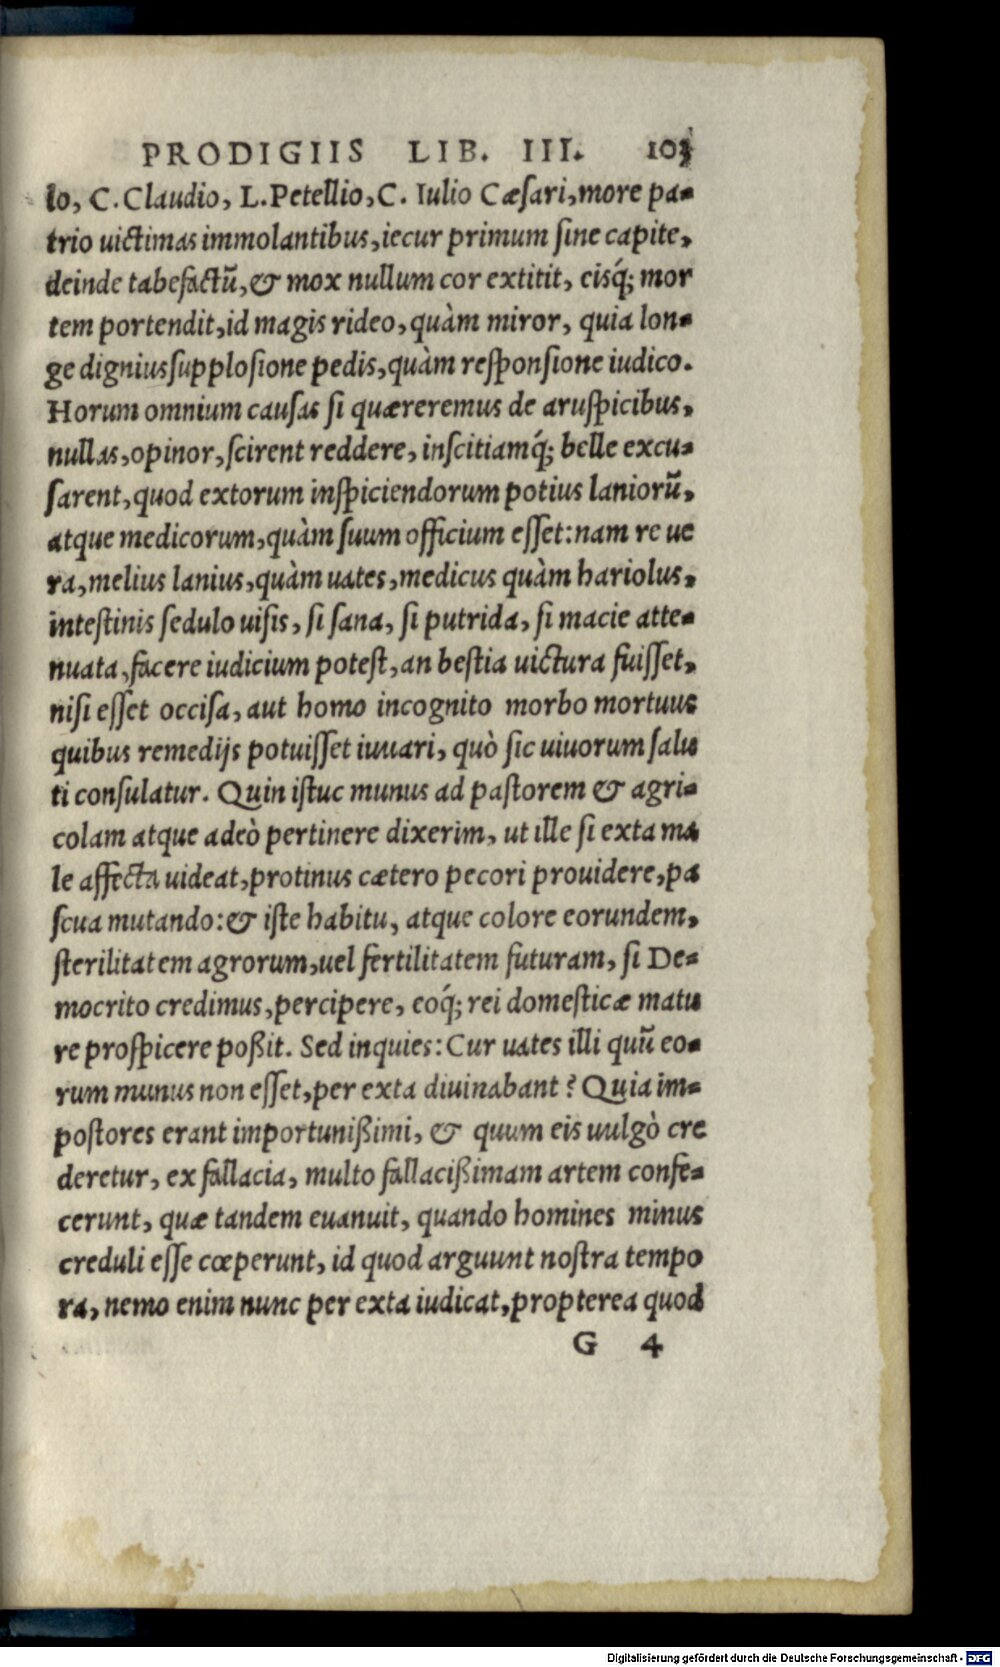 PRODIGIIS LIB. III. 103
lo, C. Claudio, L. Petellio, C. Iulio Cæsari, more pa-
trio uictimas immolantibus, iecur primum sine capite,
deinde tabefactũ, & mox nullum cor extitit, eisq́; mor
tem portendit, id magis rideo, quàm miror, quia lon-
ge dignius supplosione pedis, quàm responsione iudico.
Horum omnium causas si quæreremus de aruspicibus,
nullas, opinor, scirent reddere, inscitiamq́; belle excu-
sarent, quod extorum inspiciendorum potius laniorũ,
atque medicorum, quàm suum officium esset: nam re ue
ra, melius lanius, quàm uates, medicus quàm hariolus,
intestinis sedulo uisis, si sana, si putrida, si macie atte-
nuata, facere iudicium potest, an bestia uictura fuisset,
nisi esset occisa, aut homo incognito morbo mortuus
quibus remedijs potuisset iuuari, quò sic uiuorum salu
ti consulatur. Quin istuc munus ad pastorem & agri-
colam atque adeò pertinere dixerim, ut ille si exta ma
le affecta uideat, protinus cætero pecori prouidere, pa
scua mutando: & iste habitu, atque colore eorundem,
sterilitatem agrorum, uel fertilitatem futuram, si De-
mocrito credimus, percipere, eoq́; rei domesticæ matu
re prospicere poßit. Sed inquies: Cur uates illi quũ eo-
rum munus non esset, per exta diuinabant? Quia im-
postores erant importunißimi, & quum eis uulgò cre
deretur, ex fallacia, multo fallacißimam artem confe-
cerunt, quæ tandem euanuit, quando homines minus
creduli esse cœperunt, id quod arguunt nostra tempo
ra, nemo enim nunc per exta iudicat, propterea quod
G 4
Digitalisierung gefördert durch die Deutsche Forschungsgemeinschaft - DFG